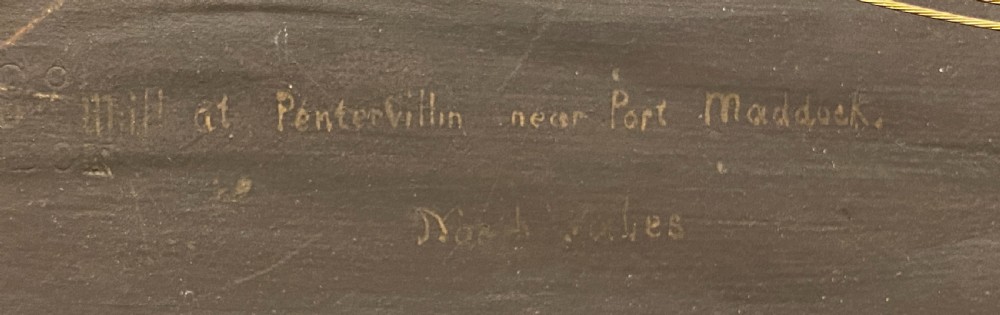 Mill at Pentervillin near Port Maddock.
North Wales